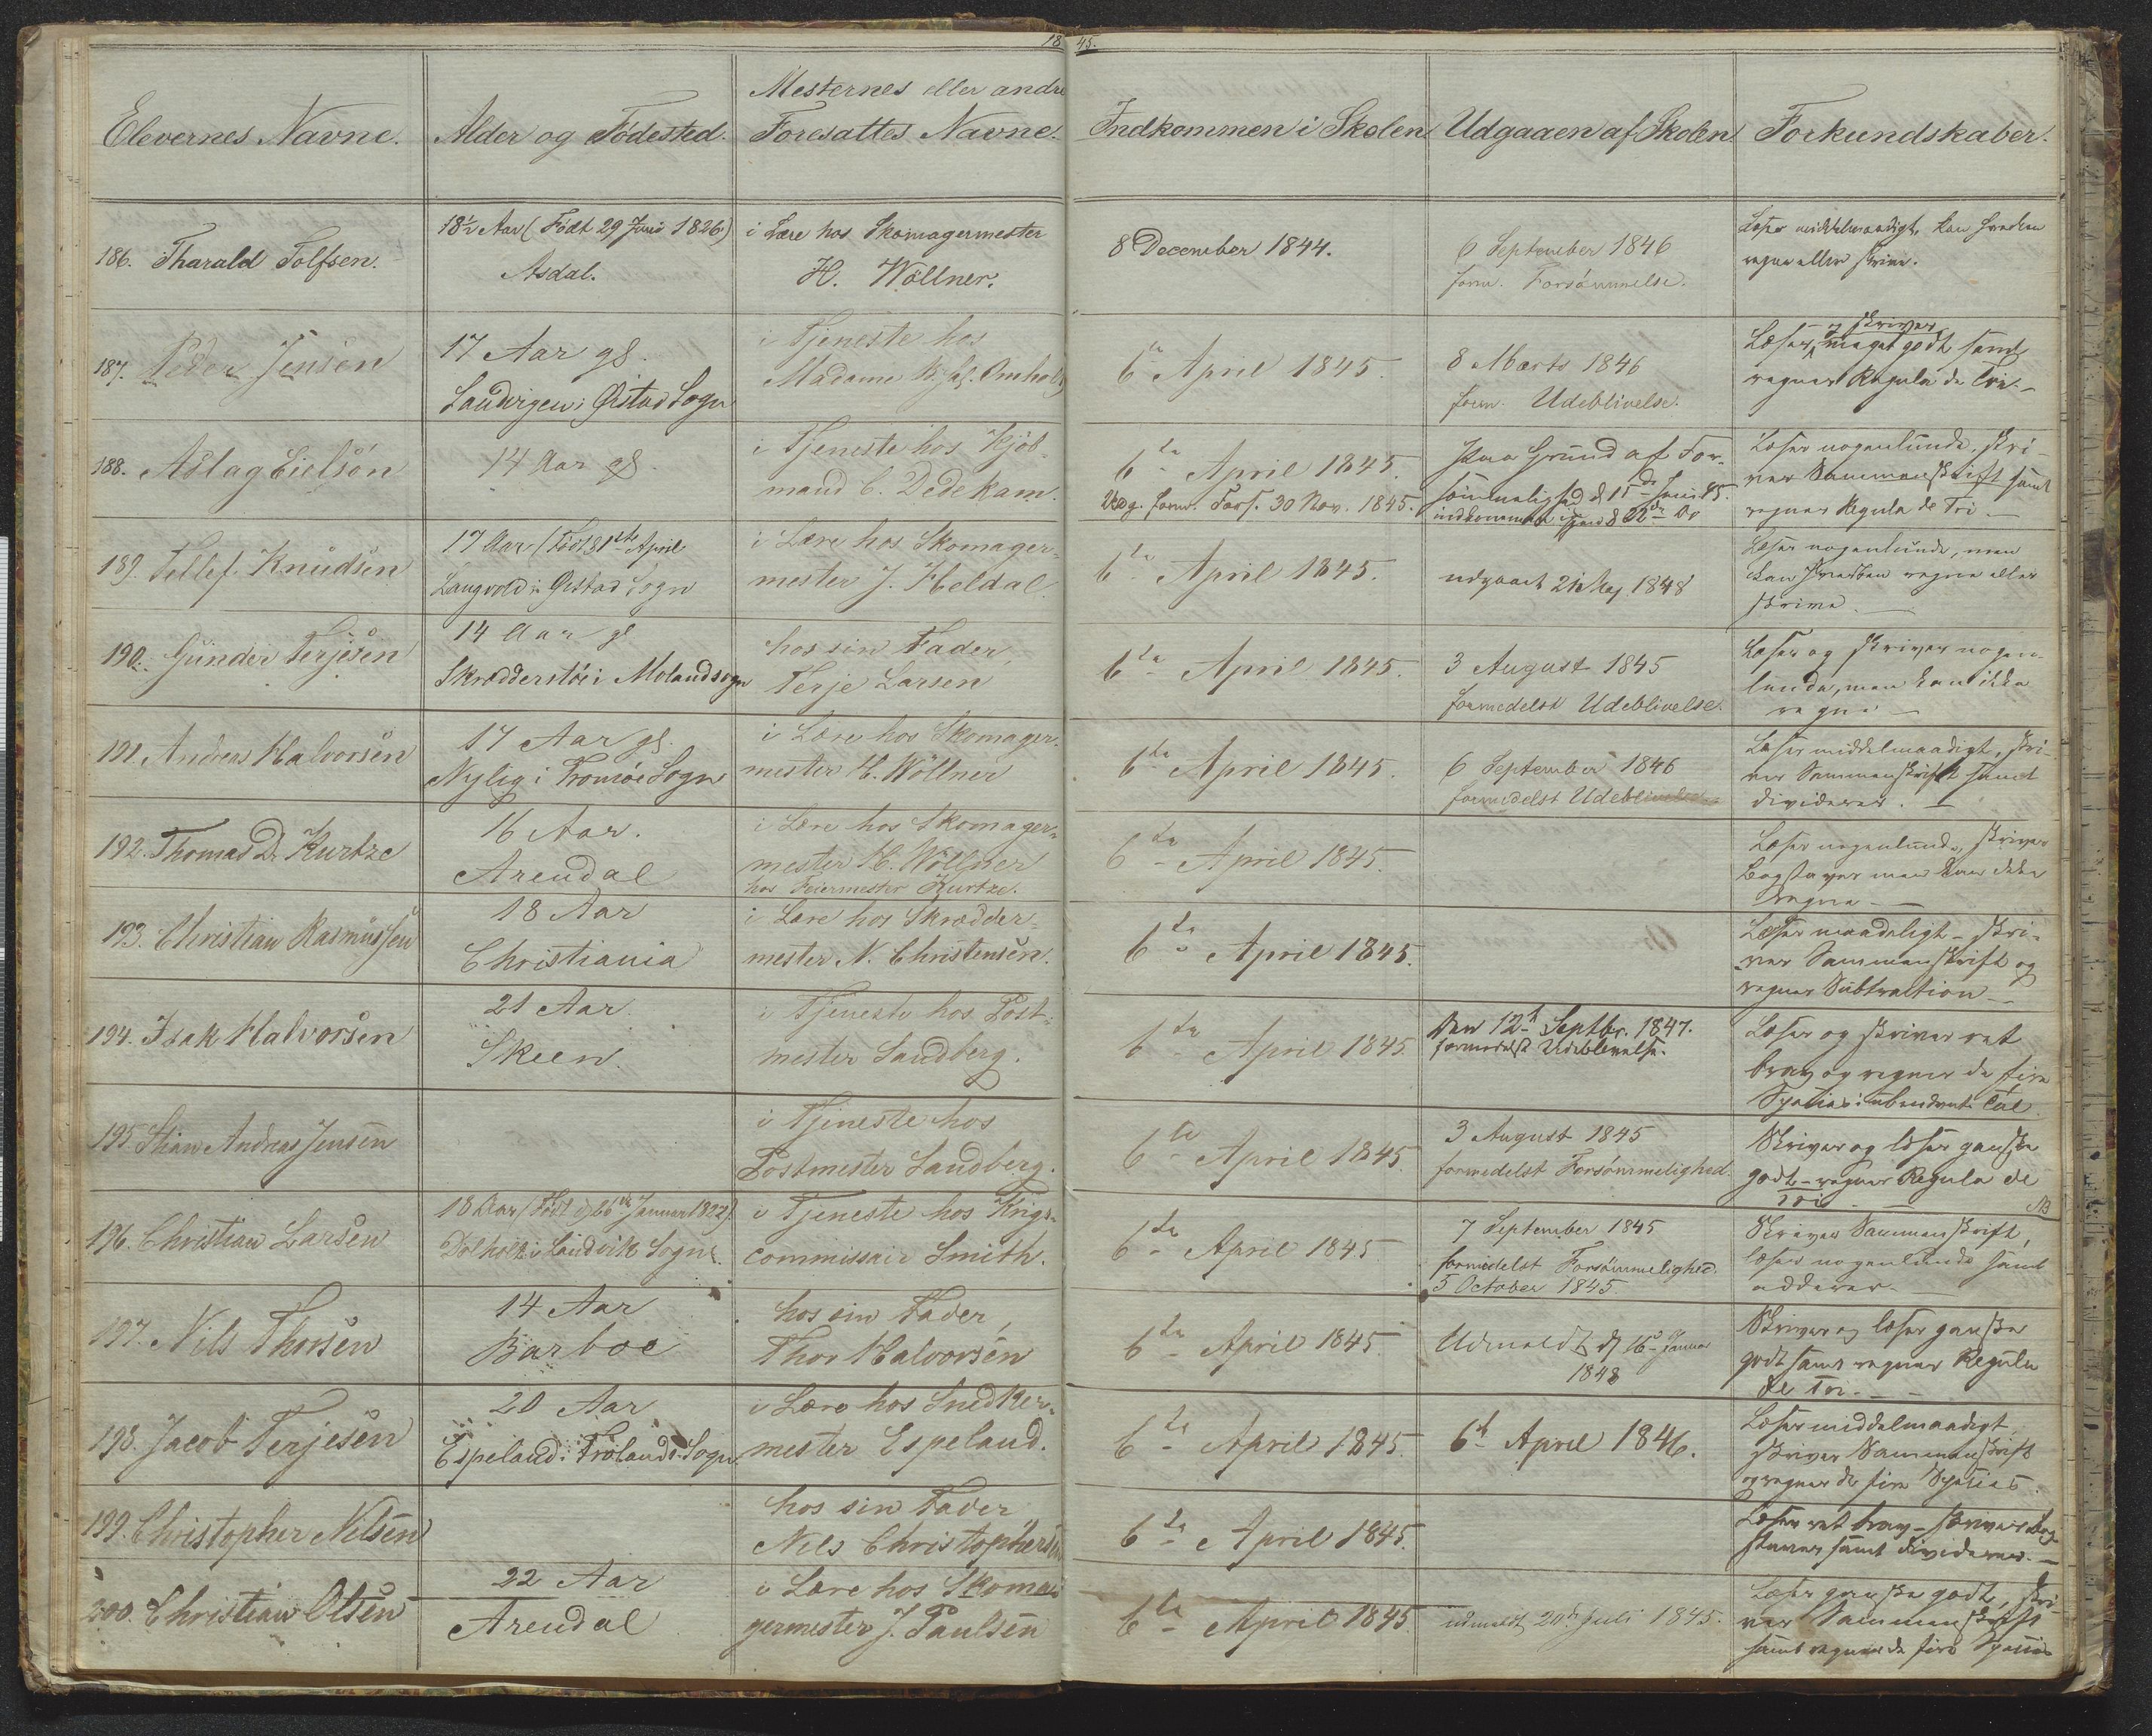 18 45.
Elevernes Navne.
Alder og Födested.
Mesternes eller andre
Foresattes Navne.
Indkommen i Skolen
Udgaaen af Skolen
Forkundskaber.
186. Tharald Tolfsen.
18½ Aar (Födt 29 Juni 1826)
Asdal.
i Lære hos Skomagermester
H. Wöllner.
8 December 1844.
6 September 1846
form. Forsömmelse.
Læser middelmaadigt, kan hverken
regne eller skrive.
187. Peder Jensen
17 Aar gl.
i Öistad Sogn
i Tjeneste hos
Madame
6te April 1845.
8 Marts 1846
form. Udeblivelse.
Læser og skriver
meget godt samt
regner Regula de Tri. -
188. Aslag Eielsön
14 Aar gl.
i Tjeneste hos Kjöb-
mand C. Dedekam.
6te April 1845.
Udg. form. Fors. 30 Nov. 1845.
Paa Grund af For-
sömmelighed d 15de Juni 45.
indkommen igjen d 22de Do
Læser nogenlunde, skri-
ver Sammenskrift samt
regner Regula de Tri -
189. Tellef Knudsen
17 Aar (Födt 31te April
Langvold i Öistad Sogn
i Lære hos Skomager-
mester J. Heldal.
6te April 1845.
udgaaet 21 Maj 1848
Læser nogenlunde, men
kan hverken regne eller
skrive. -
190. Gunder Terjesen
14 Aar gl
Skrædderstöe i Molandsogn
hos sin Fader,
Terje Larsen
6te April 1845.
3 August 1845
formedelst Udeblivelse.
Læser og skriver nogen-
lunde, men kan ikke
regne -
191. Andreas Halvorsen
17 Aar gl.
Nylig i Tromöe Sogn
i Lære hos Skomager-
mester H. Wöllner
6te April 1845.
6 September 1846
formedelst Udeblivelse
Læser middelmaadigt, skri-
ver Sammenskrift samt
dividerer. -
192. Thomas D. Kurtze
16 Aar.
Arendal
i Lære hos Skomager-
mester H. Wöllner
hos Feiermester Kurtze.
6te April 1845.
Læser nogenlunde, skriver
Bogstaver men kan ikke
regne -
193. Christian Rasmussen
18 Aar
Christiania
i Lære hos Skrædder-
mester N. Christensen.
6te April 1845.
Læser maadeligt - skri-
ver Sammenskrift og
regner Subtraction -
194. Isak Halvorsen
21 Aar.
Skeen.
i Tjeneste hos Post-
mester Sandberg.
6te April 1845.
Den 12te Septbr. 1847.
formedelst Udeblivelse.
Læser og skriver ret
brav og regner de fire
Species i ubenævnte Tal.
195. Stian Andreas Jensen
i Tjeneste hos
Postmester Sandberg.
6te April 1845.
3 August 1845
formedelst Forsömmelighed.
Skriver og læser ganske
godt - regner Regula de
Tri. -
NB
196. Christian Larsen
18 Aar (Födt d 26de Januar 1827)
Dolholt i Landvik Sogn.
i Tjeneste hos Krigs-
commissair Smith.
6te April 1845
7 September 1845
formedelst Forsömmelighed.
5 October 1845
Skriver Sammenskrift,
læser nogenlunde samt
adderer. -
197. Nils Thorsen
14 Aar
Barboe
hos sin Fader,
Thor Halvorsen
6te April 1845.
Udmeldt d 16de Januar
1848
Skriver og læser ganske
godt samt regner Regula
de Tri. -
198. Jacob Terjesen
20 Aar
Espeland i Frolands Sogn
i Lære hos Snedker-
mester Espeland.
6te April 1845.
6te April 1846.
Læser middelmaadigt,
skriver Sammenskrift
og regner de fire Species.
199. Christopher Nilsen
hos sin Fader
Nils Christophersen
6te April 1845.
Læser ret brav - skriver Bog-
staver samt dividerer. -
200. Christian Olsen
22 Aar
Arendal
i Lære hos Skoma-
germester J. Paulsen
6te April 1845.
udmeldt 20de Juli 1845.
Læser ganske godt, skri-
ver Sammenskrift
samt regner de fire Species